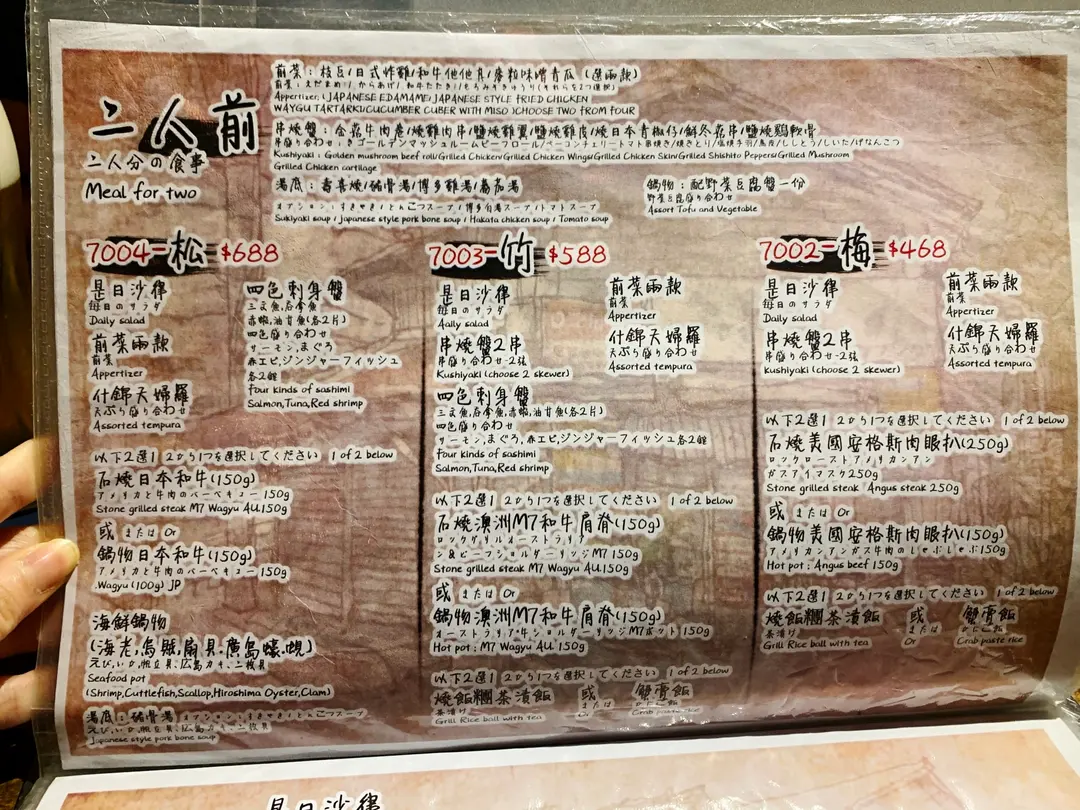 二人前
二人分の食事
Meal for two
前菜：枝豆/日式炸雞/和牛他他/麥粒味噌青瓜（選兩款）
Appertizer:(JAPANESE EDAMAME/JAPANESE STYLE FRIED CHICKEN
WAYGU TARTARKI/CUCUMBER CUBER WITH MISO )CHOOSE TWO FROM FOUR
串燒盤：金菇牛肉卷/燒雞肉串/鹽燒雞翼/鹽燒雞皮/燒日本青椒仔/鮮冬菇串/鹽燒鷄軟骨
Kushiyaki : Golden mushroom beef roll/Grilled Chicken/Grilled Chicken Wings/Grilled Chicken Skin/Grilled Shishito Peppers/Grilled Mushroom
Grilled Chicken cartilage
湯底：壽喜燒/豬骨湯/博多雞湯/蕃茄湯
オプション：すきやき/とんこつスープ/博多白湯スープ/トマトスープ
Sukiyaki soup / Japanese style pork bone soup / Hakata chicken soup / Tomato soup
鍋物：配野菜豆腐盤一份
野菜豆腐盛り合わせ
Assort Tofu and Vegetable
7004-松 $688
是日沙律
毎日のサラダ
Daily salad
前菜兩款
前菜
Appertizer
什錦天婦羅
天ぷら盛り合わせ
Assorted tempura
四色刺身盤
三文魚,吞拿魚,
赤蝦,油甘魚(各2片)
四色盛り合わせ
サーモン,まぐろ,
赤エビ,ジンジャーフィッシュ
各2個
Four kinds of sashimi
Salmon,Tuna,Red shrimp
以下2選1 2から1つを選択してください 1 of 2 below
石燒日本和牛(150g)
アメリカと牛肉のバーベキュー 150g
Stone grilled steak M7 Wagyu AU.150g
或 または Or
鍋物日本和牛(150g)
アメリカと牛肉のバーベキュー 150g
.Wagyu (100g) JP
海鮮鍋物
(海老,烏賊,扇貝.廣島蠔.蜆)
えび,いか,帆立貝、広島カキ、二枚貝
Seafood pot
(Shrimp,Cuttlefish,Scallop,Hiroshima Oyster,Clam)
湯底：豬骨湯 オプション：すきやき/とんこつスープ
えび,いか,帆立貝、広島カキ、二枚貝
Japanese style pork bone soup
7003-竹 $588
是日沙律
毎日のサラダ
Aally salad
串燒盤2串
串盛り合わせ-2張
Kushiyaki (choose 2 skewer)
前菜兩款
前菜
Appertizer
什錦天婦羅
天ぷら盛り合わせ
Assorted tempura
四色刺身盤
三文魚,吞拿魚,赤蝦,油甘魚(各2片)
四色盛り合わせ
サーモン,まぐろ,赤エビ,ジンジャーフィッシュ各2個
Four kinds of sashimi
Salmon,Tuna,Red shrimp
以下2選1 2から1つを選択してください 1 of 2 below
石燒澳洲M7和牛肩脊(150g)
ロックグリルオーストラリア
ン&ビーフショルダーリッジM7 150g
Stone grilled steak M7 Wagyu AU.150g
或 または Or
鍋物澳洲M7和牛肩脊(150g)
オーストラリア牛ショルダーリッジM7ポット 150g
Hot pot : M7 Wagyu AU. 150g
以下2選1 2から1つを選択してください 1 of 2 below
燒飯糰茶漬飯 或 蟹膏飯
茶漬け または かにご飯
Grill Rice ball with tea Or Crab paste rice
7002-梅 $468
是日沙律
毎日のサラダ
Daily salad
串燒盤2串
串盛り合わせ-2張
Kushiyaki (choose 2 skewer)
前菜兩款
前菜
Appertizer
什錦天婦羅
天ぷら盛り合わせ
Assorted tempura
以下2選1 2から1つを選択してください 1 of 2 below
石燒美國安格斯肉眼扒(250g)
ロックローストアメリカンアン
ガスアイマスク250g
Stone grilled steak Angus steak 250g
或 または Or
鍋物美國安格斯肉眼扒(150g)
アメリカンアンガス牛肉のしゃぶしゃぶ150g
Hot pot : Angus beef 150g
以下2選1 2から1つを選択してください 1 of 2 below
燒飯糰茶漬飯 或 蟹膏飯
茶漬け または かにご飯
Grill Rice ball with tea Or Crab paste rice
是日沙律